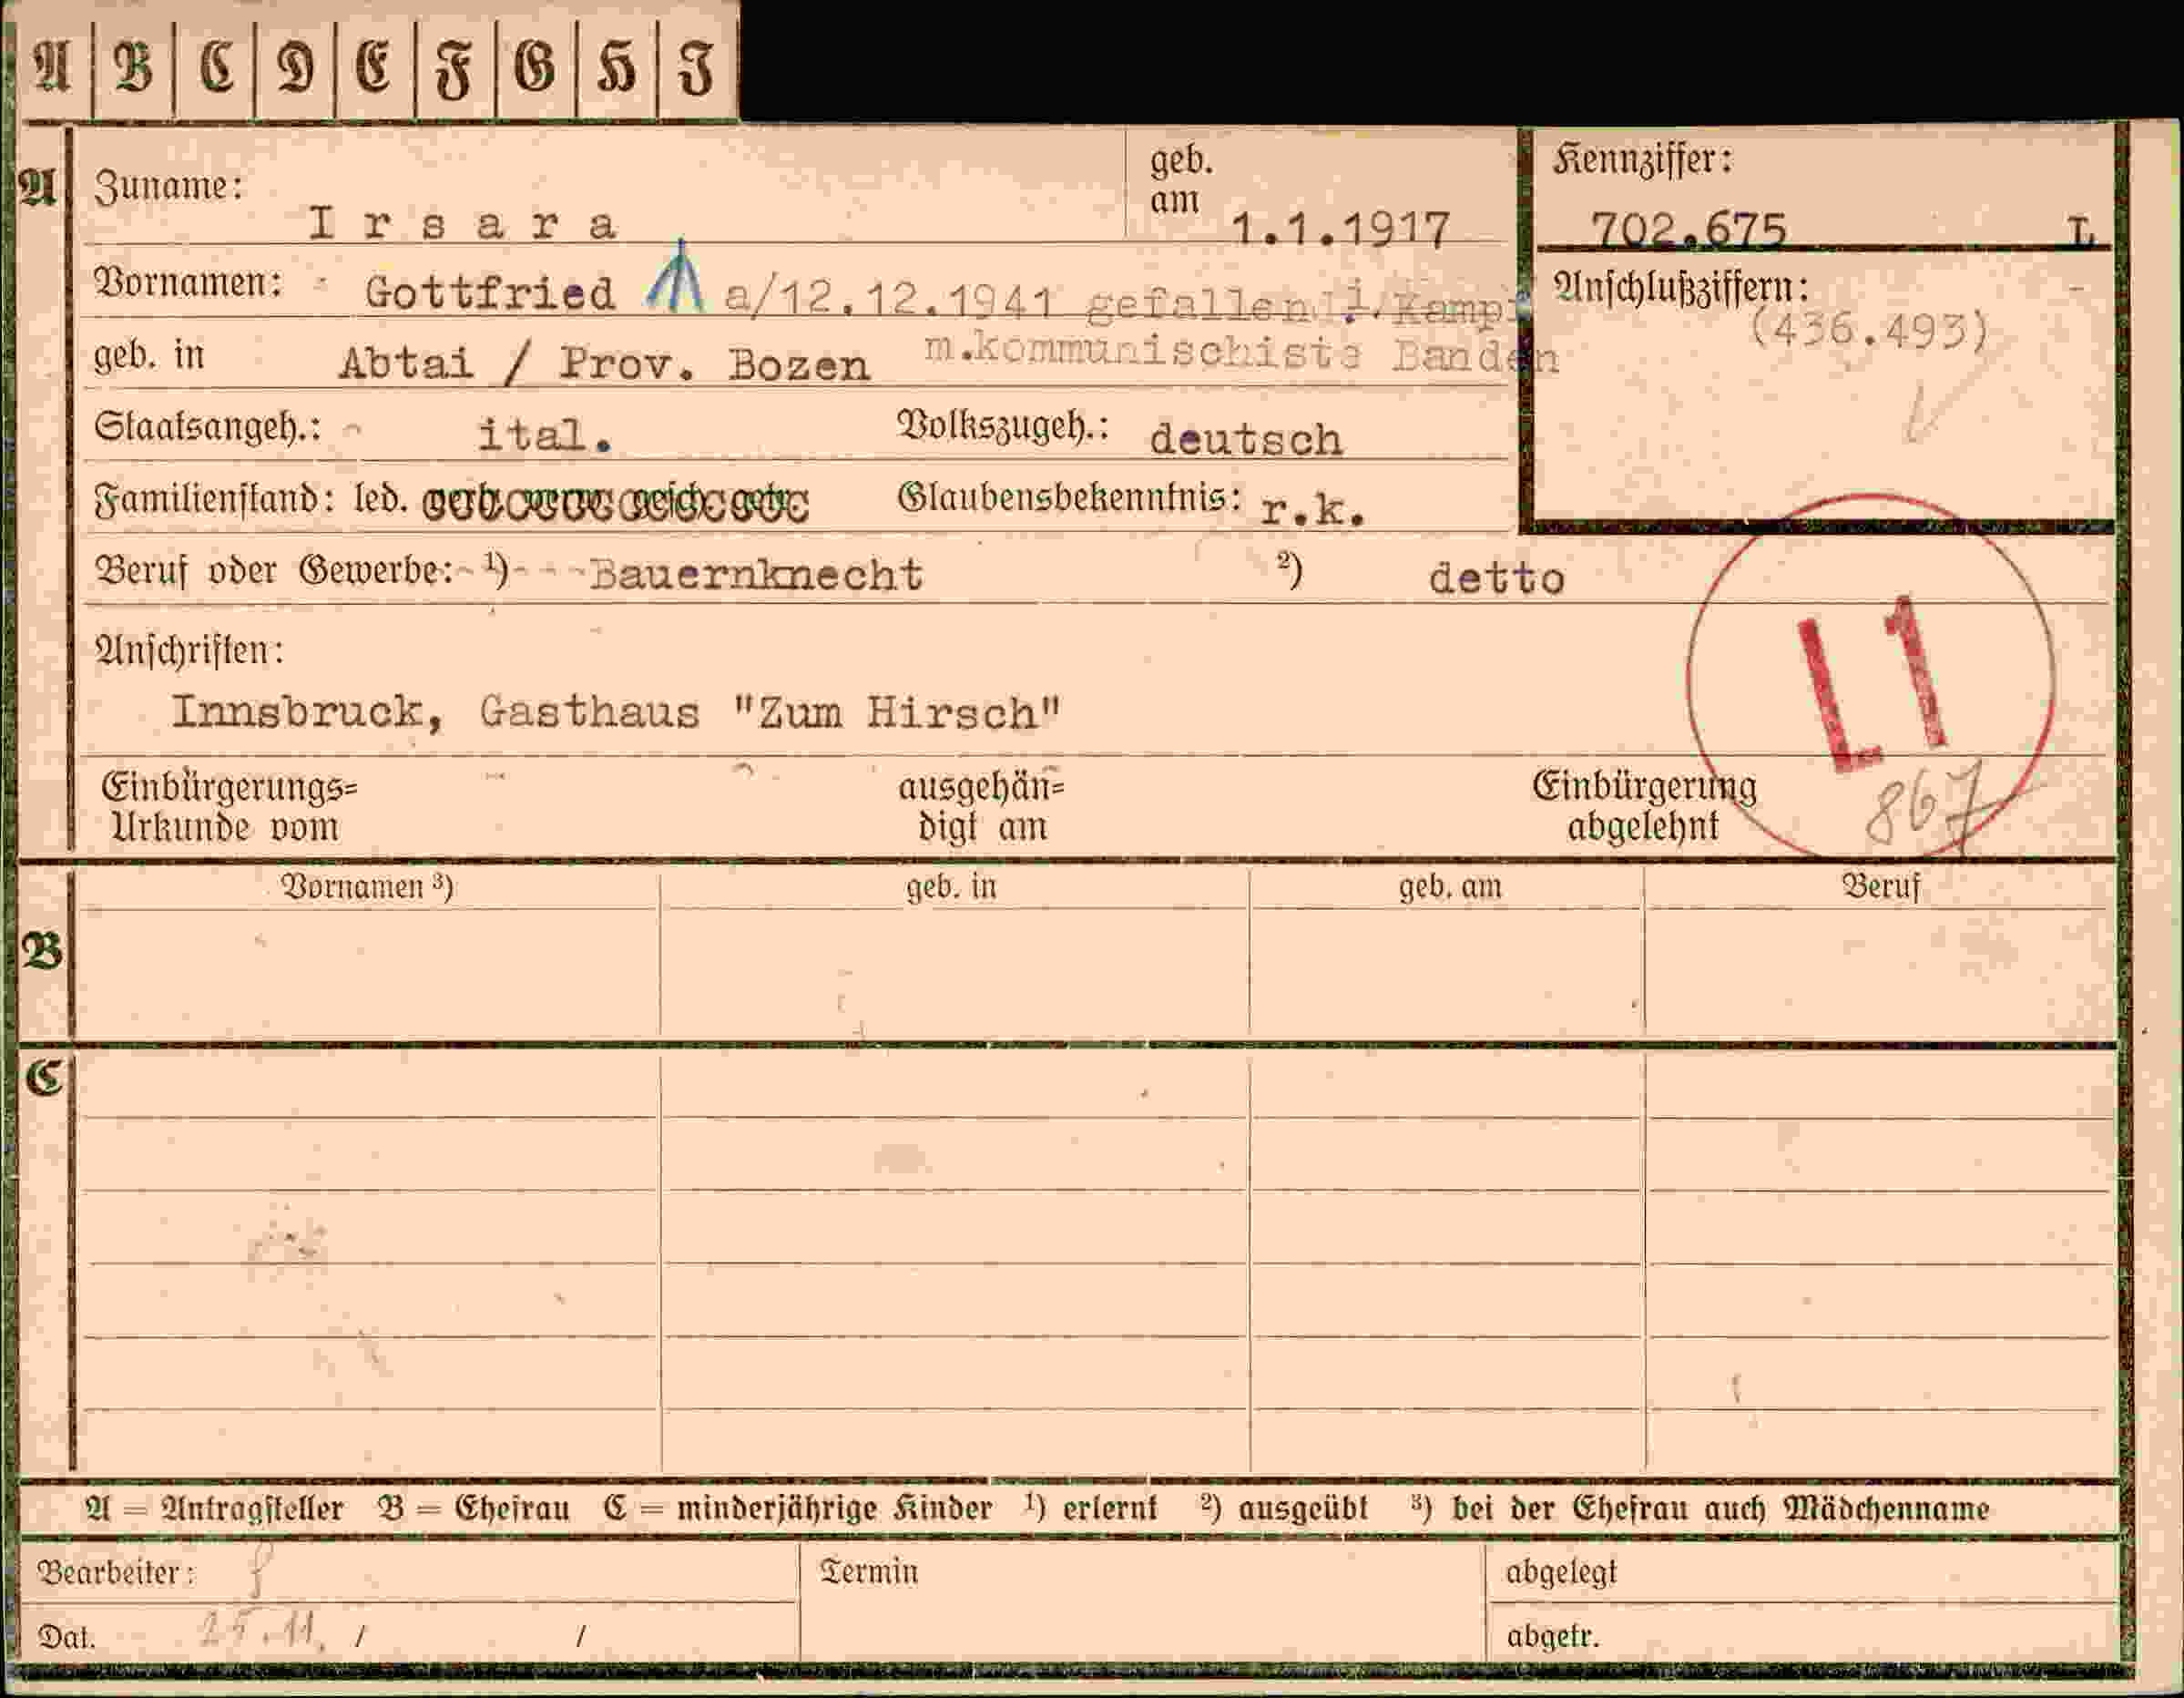 A B C D E F G H I
A
Zuname: Irsara
geb. am 1.1.1917
Kennziffer:
702.675 L
Vornamen: Gottfried a/12.12.1941 gefallen i. Kampf
Anschlußziffern:
(436.493)
geb. in Abtai / Prov. Bozen m.kommunischiste Banden
Staatsangeh.: ital. Volkszugeh.: deutsch
Familienstand: led. verh. verw. gesch. getr. Glaubensbekenntnis: r.k.
Beruf oder Gewerbe: 1) Bauernknecht 2) detto
L1
Anschriften:
Innsbruck, Gasthaus "Zum Hirsch"
Einbürgerungs=
Urkunde vom
ausgehän=
digt am
Einbürgerung
abgelehnt
867
Vornamen 3) geb. in geb. am Beruf
B
C
A = Antragsteller B = Ehefrau C = minderjährige Kinder 1) erlernt 2) ausgeübt 3) bei der Ehefrau auch Mädchenname
Bearbeiter: Termin abgelegt
Dat. 25.11. / / abgetr.